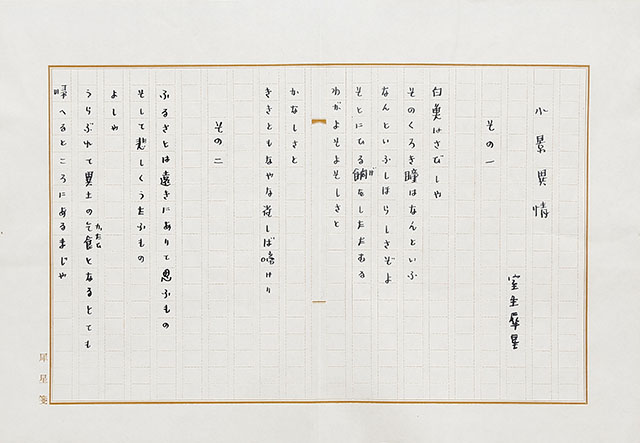 小景異情
室生犀星
その一
白魚はさびしや
そのくろき瞳はなんといふ
なんといふしほらしさぞよ
そとにひる餉をしたたむる
わがよそよそしさと
かなしさと
ききともなやな雀しば啼けり
その二
ふるさとは遠きにありて思ふもの
そして悲しくうたふもの
よしや
うらぶれて異土の乞食となるとても
かたゐ
帰へるところにあるまじや
犀星箋